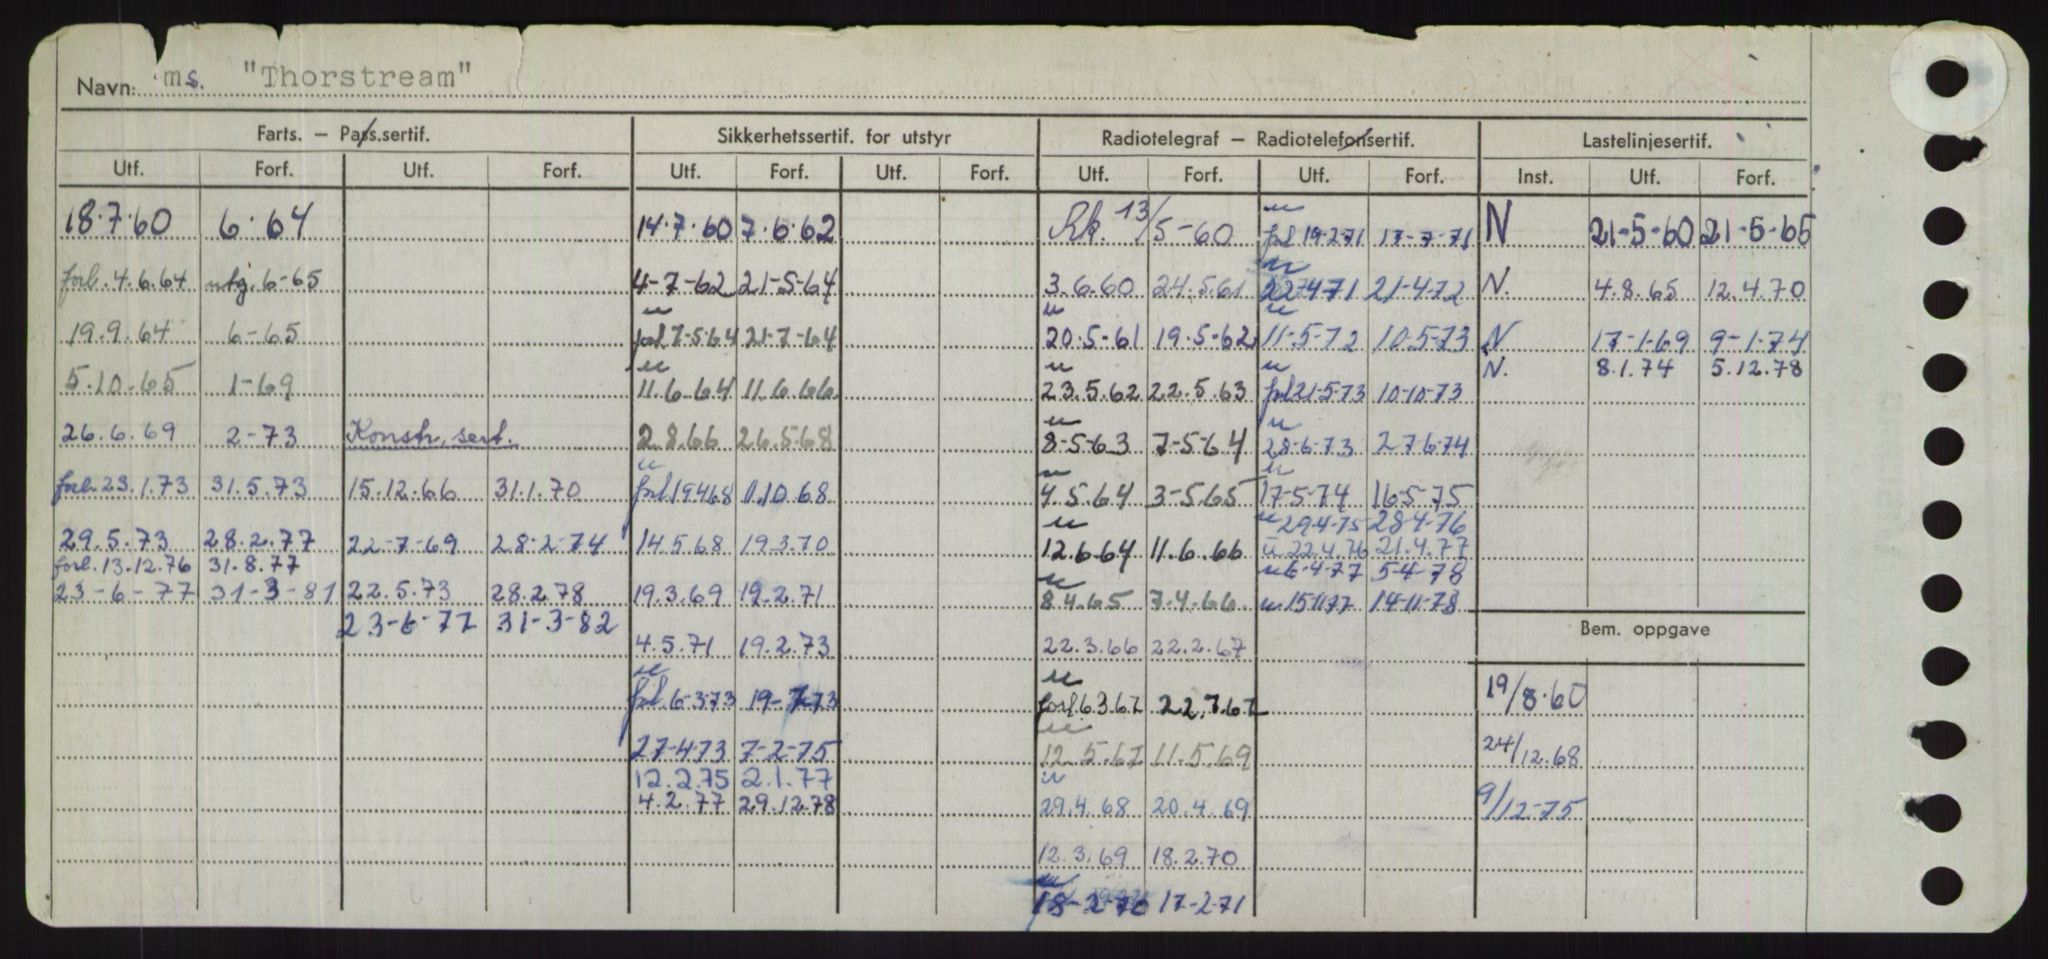 Navn: ms. "Thorstream"
Farts. — Pass.sertif. Sikkerhetssertif. for utstyr Radiotelegraf — Radiotelefonsertif. Lastelinjesertif.
Utf. Forf. Utf. Forf. Utf. Forf. Utf. Forf. Utf. Forf. Utf. Forf. Inst. Utf. Forf.
18.7.60 6.64 14.7.60 7.6.62 Rk. 13/5-60 forl 19-2-71 17-7-71 N 21-5-60 21-5-65
forl. 4.6.64 utg. 6-65 4-7-62 21-5-64 3.6.60 24.5.61 22-4-71 21-4-72 N. 4.8.65 12.4.70
19.9.64 6-65 forl 7-5-64 21-7-64 20.5-61 19.5-62 11-5-72 10-5-73 N 17-1-69 9-1-74
N. 8.1.74 5.12.78
5.10.65 1-69 11.6.64 11.6.66 23.5.62 22.5.63 forl 21-5-73 10-10-73
26.6.69 2-73 Konstr. sert. 2.8.66 26.5.68 8-5-63 7-5-64 28-6-73 27-6-74
forl. 23.1.73 31.5.73 15.12.66 31.1.70 forl 19.4.68 11.10.68 4.5.64 3-5.65 17-5-74 16-5-75
u 29-4-75 28-4-76
29.5.73 28.2.77 22-7-69 28-2-74 14.5.68 19.3.70 12.6.64 11.6.66 u 22.4.76 21.4.77
forl. 13.12.76 31.8.77 u 6-4-77 5-4-78
23-6-77 31-3-81 22.5.73 28.2.78 19.3.69 19.2.71 8.4.65 7.4.66 u 15-11-77 14-11-78
23-6-77 31-3-82
Bem. oppgave
4.5.71 19.2.73 22.3.66 22.2.67
forl 6-3-73 19-7-73 forl 6.3.67 22.7.67 19/8.60
27-4-73 7-2-75 12.5.67 11.5.69 24/12.68
12.2.75 2.1.77
4.2.77 29.12.78 29.4.68 20.4.69 9/12-75
12.3.69 18.2.70
18-2-70 17-2-71